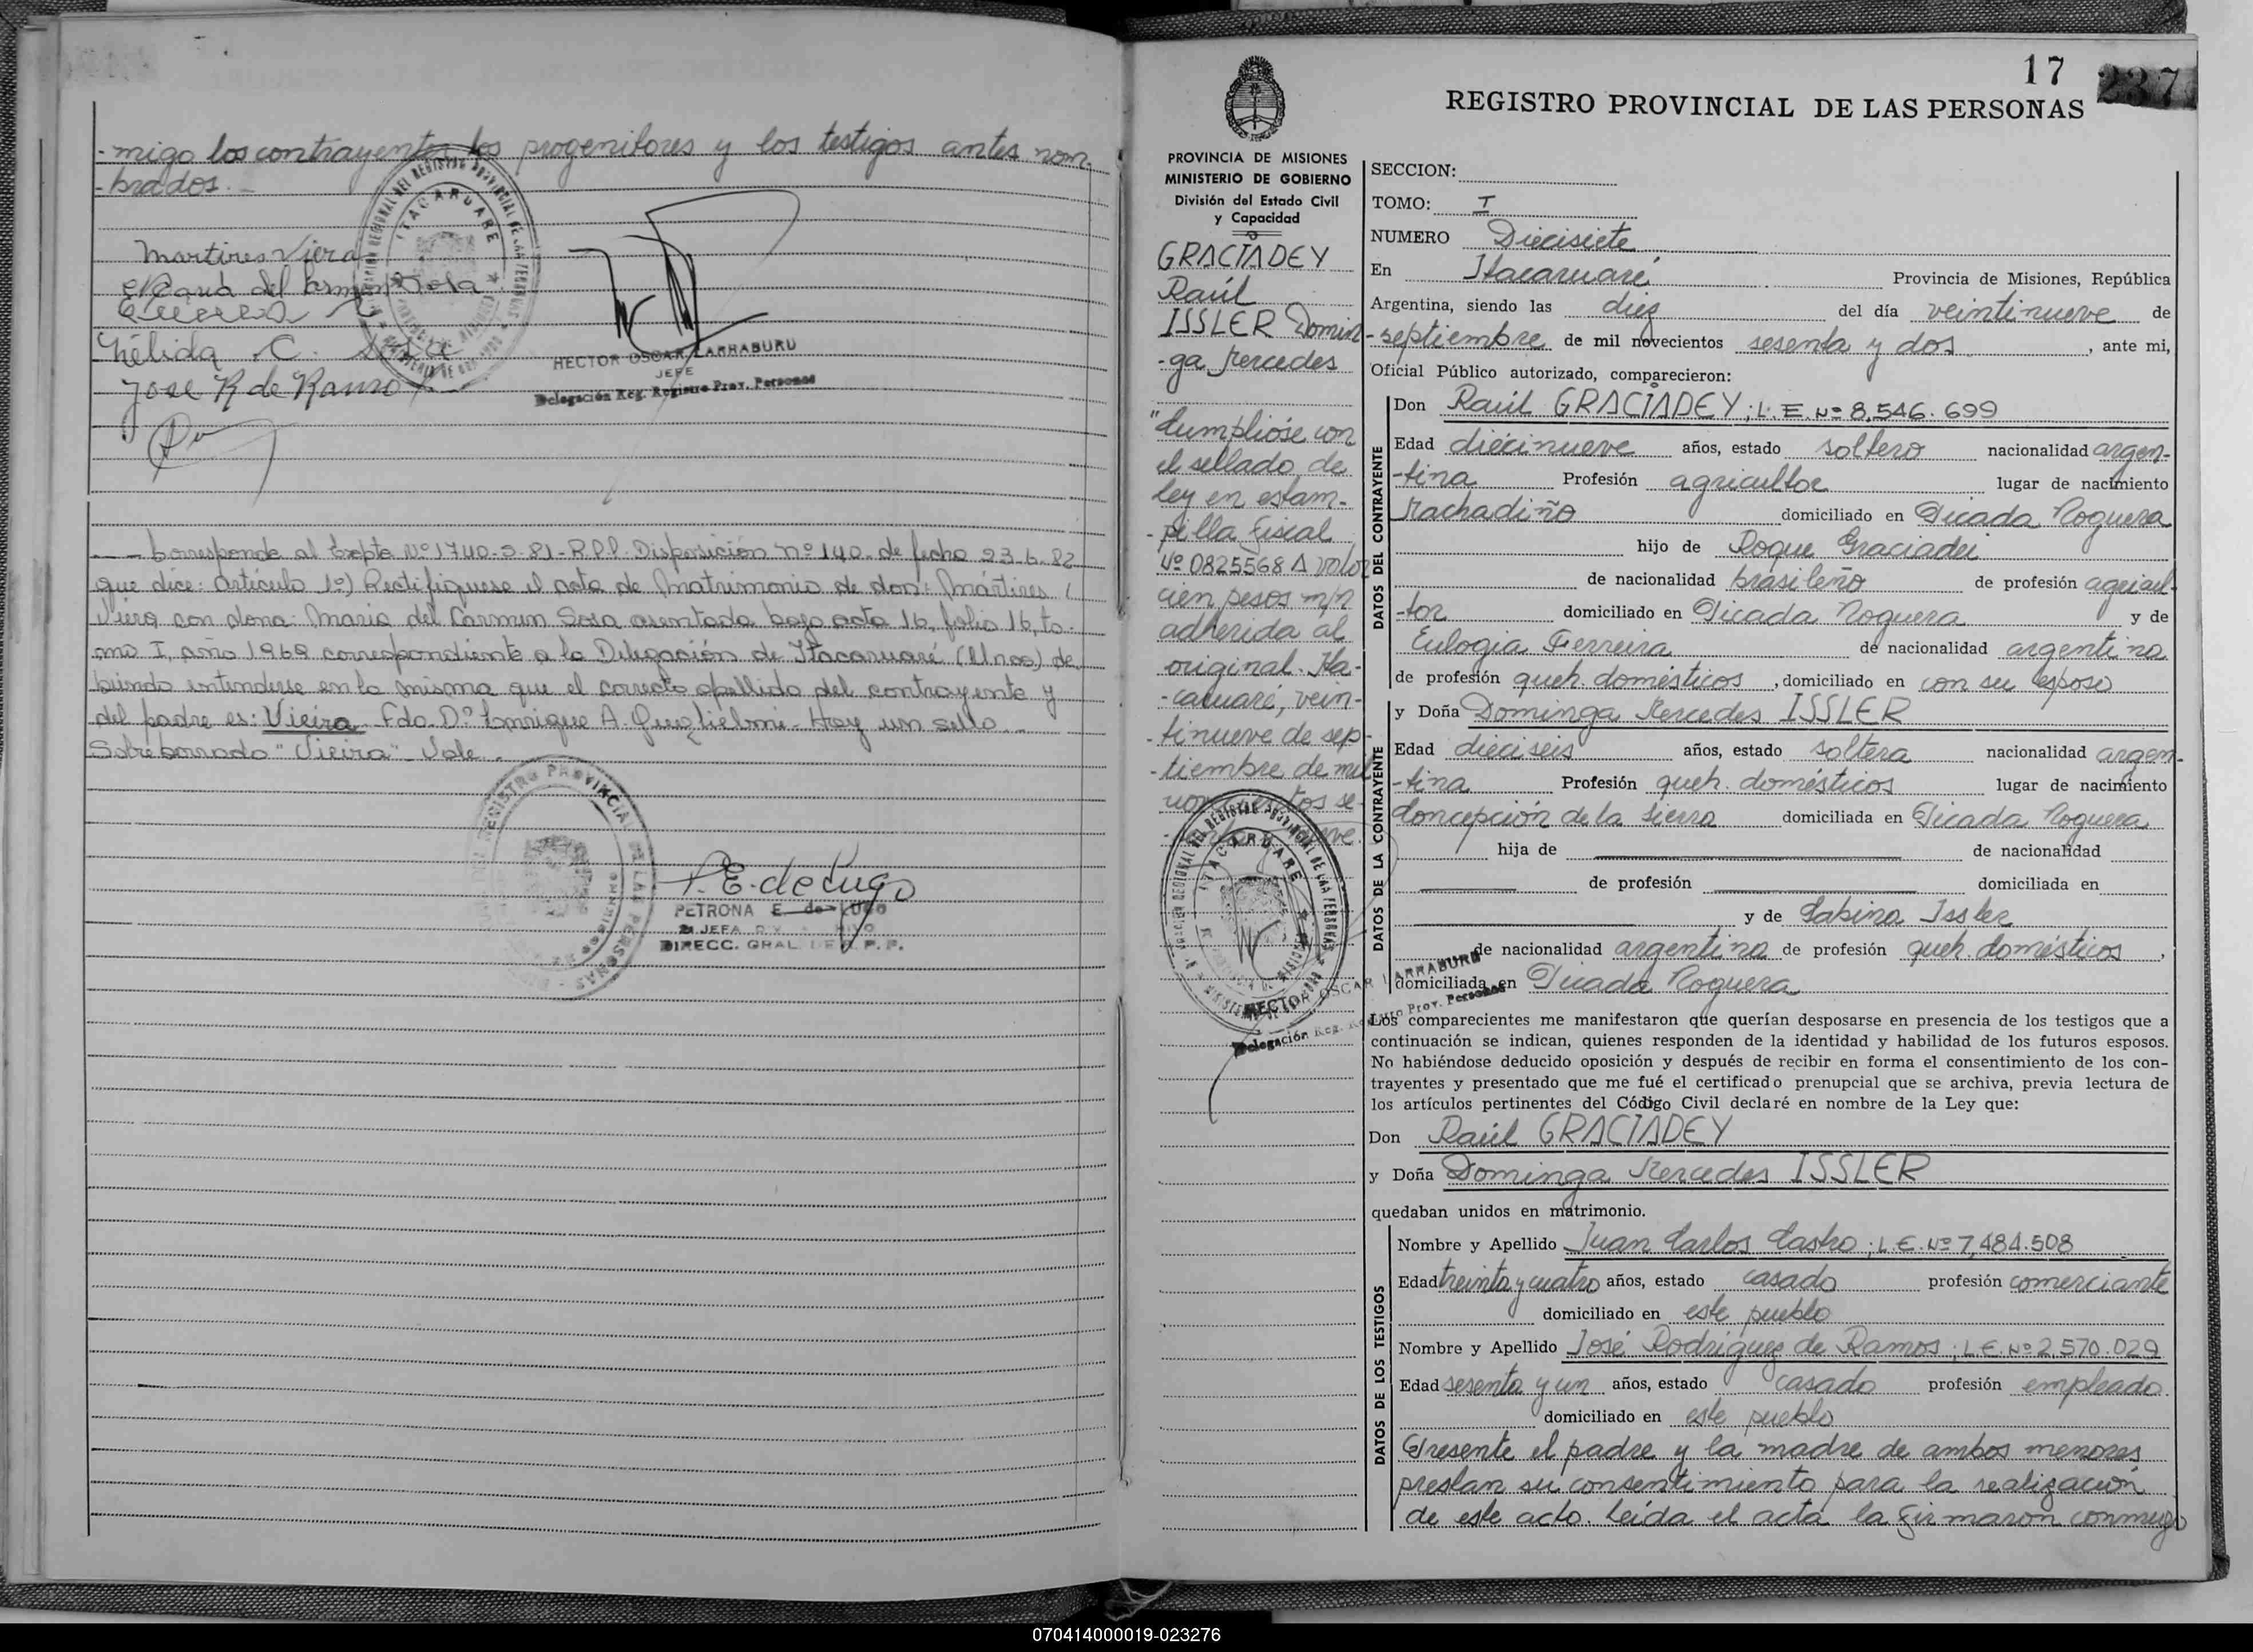 -migo los contrayentes los progenitores y los testigos antes nom-
-brados.-
Martires Viera
Maria del Carmen Sosa
Nélida C. Sosa
Jose R de Ramo
HECTOR OSCAR LARRABURU
JEFE
Delegación Reg. Registro Prov. Personas
ITACARUARE
-- Corresponde al Expte Nº 1740-S-81-R.P.P. Disposición nº 140 de fecha 23-6-82
que dice: Artículo 1º) Rectifiquese el acta de Matrimonio de don: Mártires
Viera con doña: Maria del Carmen Sosa asentada bajo acta 16, folio 16, to-
mo I, año 1969 correspondiente a la Delegación de Itacaruaré (Mnes) de-
biendo entenderse en la misma que el correcto apellido del contrayente y
del padre es: Vieira - Fdo. Dº Enrique A. Guglielmi - Hay un sello.-
Sobre borrado "Vieira" - Vale.
P. E. de Lugo
PETRONA E. de LUGO
DIRECC. GRAL DE R. P. P.
17 237
REGISTRO PROVINCIAL DE LAS PERSONAS
PROVINCIA DE MISIONES
MINISTERIO DE GOBIERNO
División del Estado Civil
y Capacidad
GRACIADEY
Raúl
ISSLER Domin-
-ga Mercedes
"Cumplióse con
el sellado de
ley en estam-
-pilla fiscal
Nº 0825568 A valor
cien pesos m/n
adherida al
original. Ita-
-caruaré, vein-
-tinueve de sep-
-tiembre de mil
novecientos se-
ITACARUARE
HECTOR OSCAR LARRABURU
Delegación Reg. Registro Prov. Personas
SECCION:
TOMO: I
NUMERO Diecisiete
En Itacaruaré Provincia de Misiones, República
Argentina, siendo las diez del día veintinueve de
-septiembre de mil novecientos sesenta y dos, ante mi,
Oficial Público autorizado, comparecieron:
DATOS DEL CONTRAYENTE
Don Raúl GRACIADEY; L.E. Nº 8,546.699
Edad diecinueve años, estado soltero nacionalidad argen-
-tina Profesión agricultor lugar de nacimiento
Machadiño domiciliado en Picada Noguera
hijo de Roque Graciadei
de nacionalidad brasileño de profesión agricul-
-tor domiciliado en Picada Noguera y de
Eulogia Ferreira de nacionalidad argentina
de profesión queh. domésticos, domiciliado en con su esposo
DATOS DE LA CONTRAYENTE
y Doña Dominga Mercedes ISSLER
Edad dieciseis años, estado soltera nacionalidad argen-
-tina Profesión queh. domésticos lugar de nacimiento
Concepción de la Sierra domiciliada en Picada Noguera
hija de de nacionalidad
de profesión domiciliada en
y de Sabina Issler
de nacionalidad argentina de profesión queh. domésticos,
domiciliada en Picada Noguera
Los comparecientes me manifestaron que querían desposarse en presencia de los testigos que a
continuación se indican, quienes responden de la identidad y habilidad de los futuros esposos.
No habiéndose deducido oposición y después de recibir en forma el consentimiento de los con-
trayentes y presentado que me fué el certificado prenupcial que se archiva, previa lectura de
los artículos pertinentes del Código Civil declaré en nombre de la Ley que:
Don Raúl GRACIADEY
y Doña Dominga Mercedes ISSLER
quedaban unidos en matrimonio.
DATOS DE LOS TESTIGOS
Nombre y Apellido Juan Carlos Castro; L.E. Nº 7,484.508
Edad treinta y cuatro años, estado casado profesión comerciante
domiciliado en este pueblo
Nombre y Apellido José Rodriguez de Ramos; L.E. Nº 2,570.029
Edad sesenta y un años, estado casado profesión empleado.
domiciliado en este pueblo
Presente el padre y la madre de ambos menores
prestan su consentimiento para la realización
de este acto. Leída el acta la firmaron conmigo
070414000019-023276